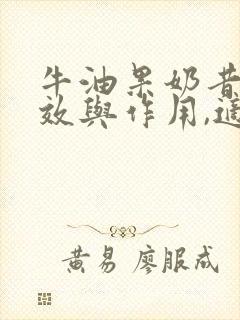 牛油果奶昔
效與作用,適
黃易 廖服成